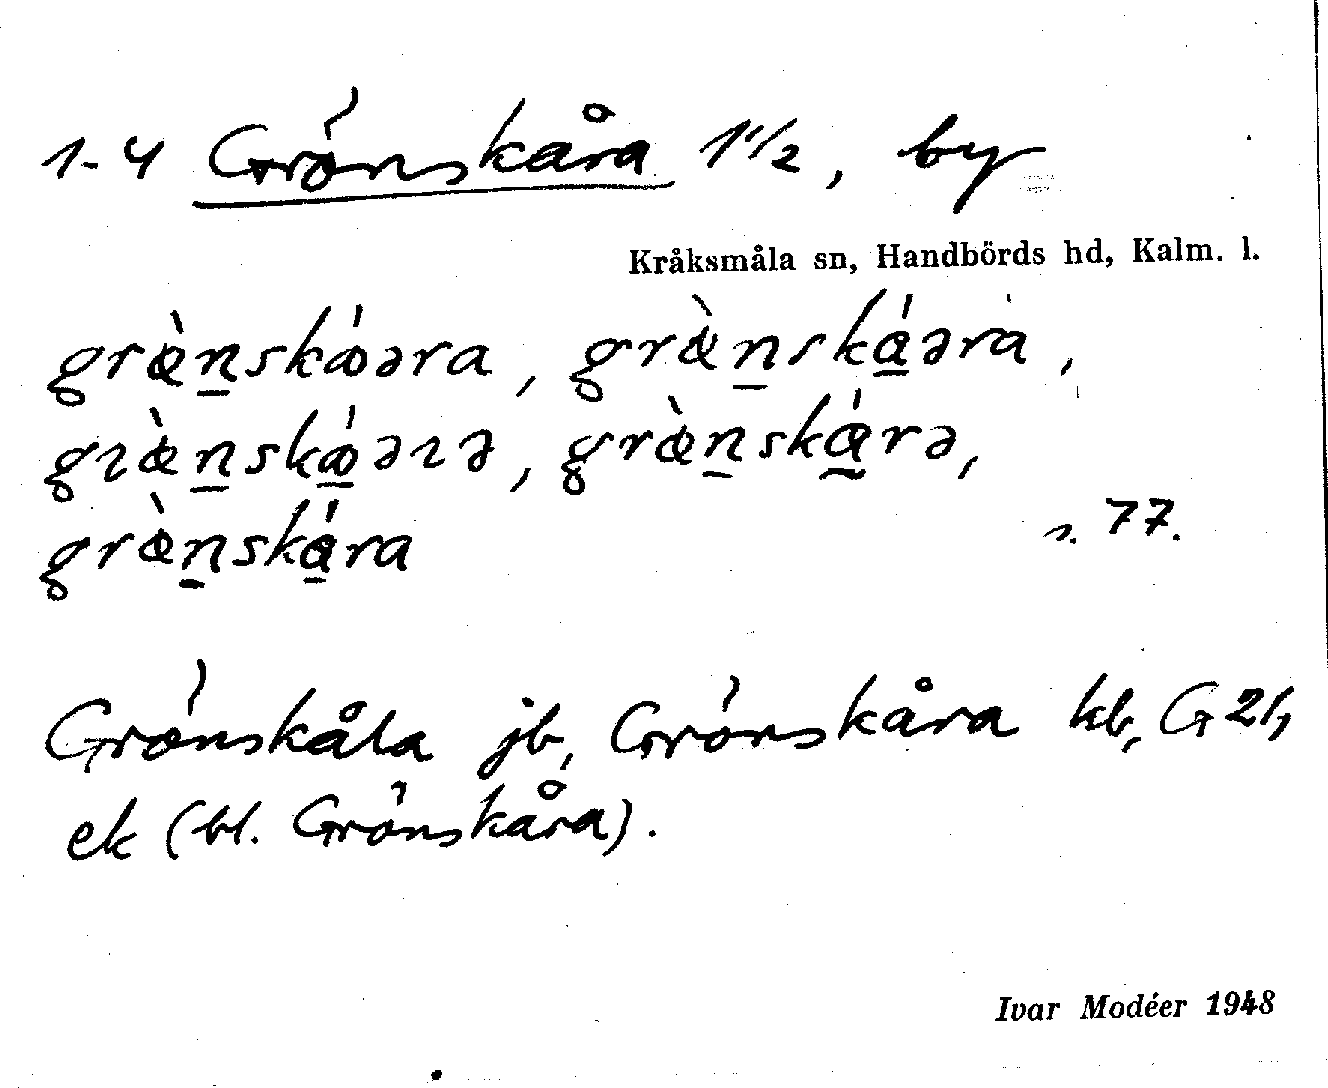 1-4 Grönskåra 1 1/2, by
Kråksmåla sn, Handbörds hd, Kalm. l.
græ̀n̲skǿəra, græ̀n̲ská̲əra,
græ̀n̲skǿ̲ərə, græ̀n̲ská̰rə,
græ̀n̲ská̲ra s. 77.
Grönskåla jb, Grönskåra kb, G 21,
ek (bl. Grönskåra).
Ivar Modéer 1948